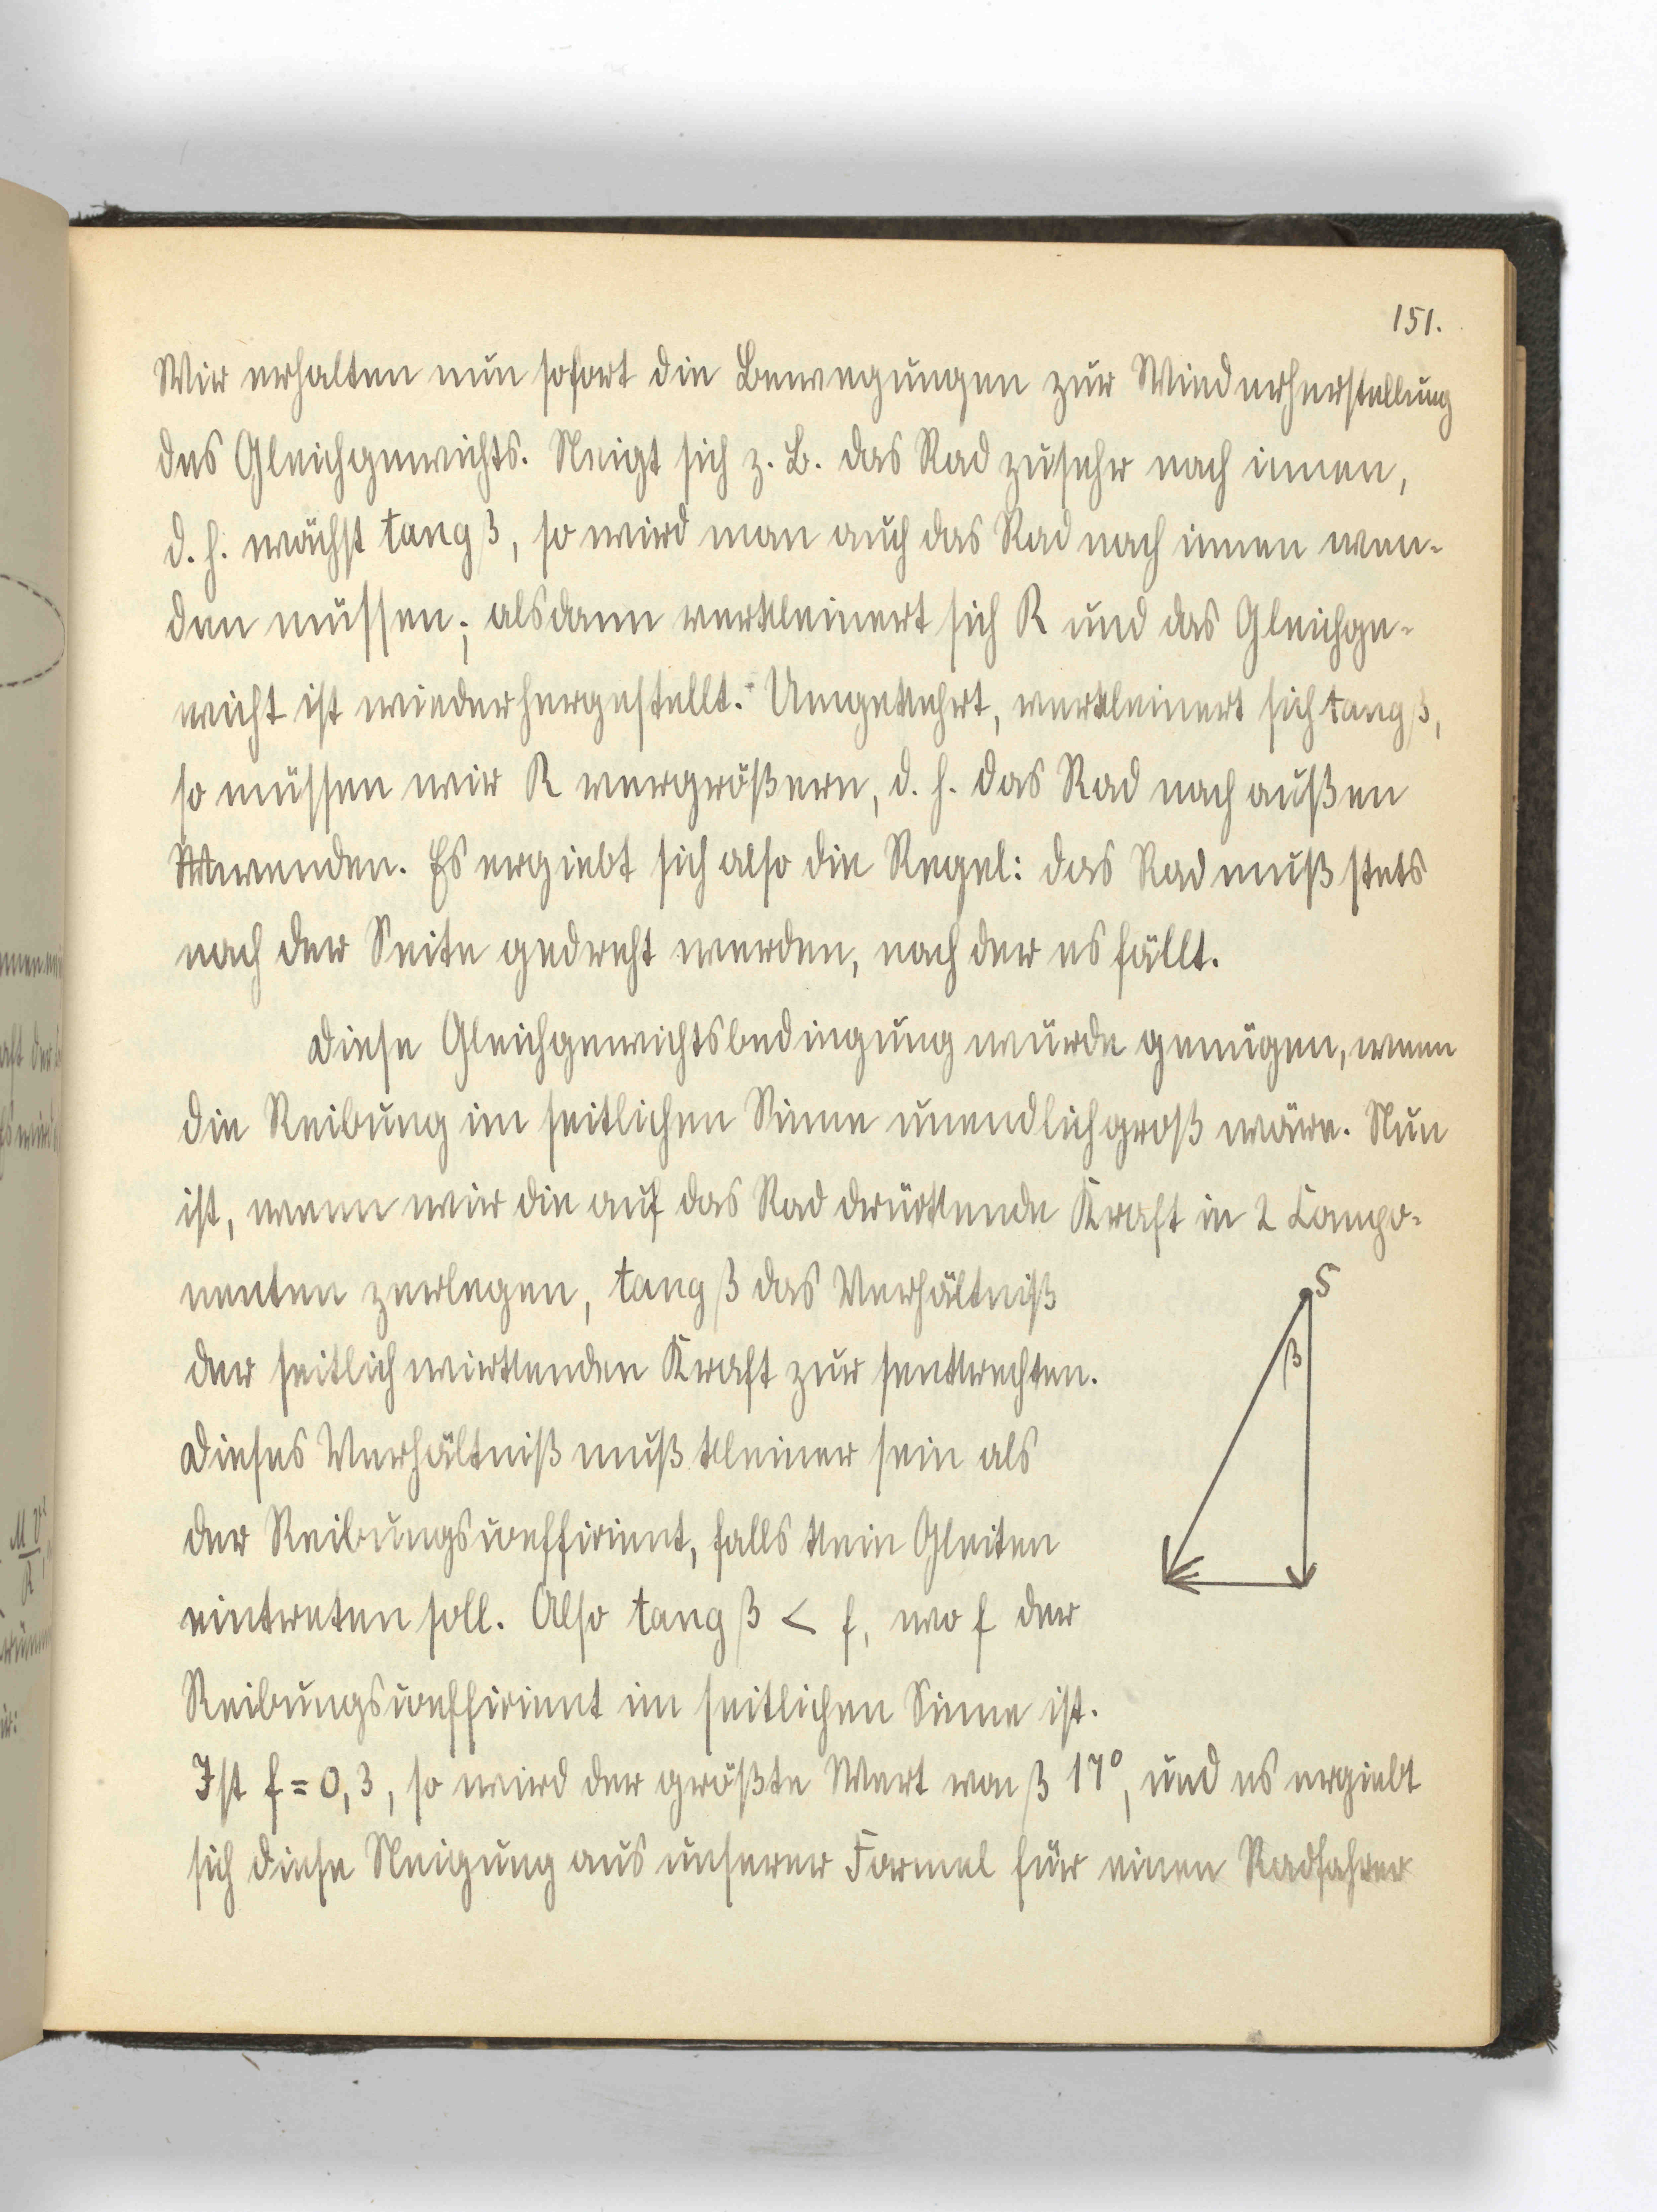 151.
Wir erhalten nun sofort die Bewegungen zur Wiederherstellung
des Gleichgewichts. Neigt sich z. B. das Rad zusehr nach innen,
d. h. wächst tang β, so wird man auch das Rad nach innen wen-
den müssen; alsdann verkleinert sich R und das Gleichge-
wicht ist wiederhergestellt. Umgekehrt, verkleinert sich tang β,
so müssen wir R vergrößern, d. h. das Rad nach außen
wenden. Es ergiebt sich also die Regel: das Rad muß stets
nach der Seite gedreht werden, nach der es fällt.
Diese Gleichgewichtsbedingung würde genügen, wenn
die Reibung im seitlichen Sinne unendlich groß wäre. Nun
ist, wenn wir die auf das Rad drückende Kraft in 2 Compo-
nenten zerlegen, tang β das Verhältniß
der seitlich wirkenden Kraft zur senkrechten.
Dieses Verhältniß muß kleiner sein als
der Reibungscoefficient, falls kein Gleiten
eintreten soll. Also tang β < f, wo f der
Reibungscoefficient im seitlichen Sinne ist.
Ist f = 0,3, so wird der größte Wert von β 17°, und es ergiebt
sich diese Neigung aus unserer Formel für einen Radfahrer
S
β
M v²
R